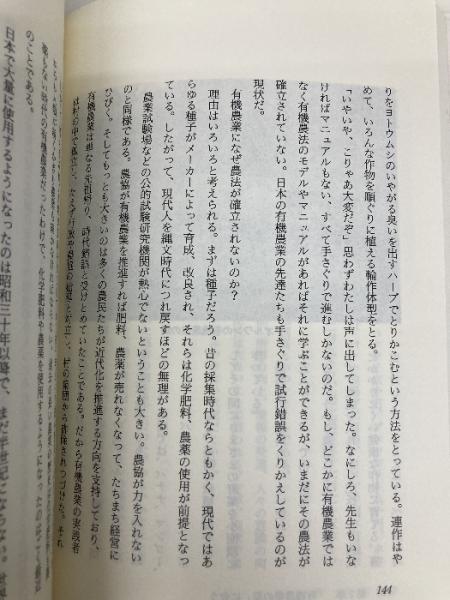 りをヨトウムシのいやがる臭いを出すハーブでとりかこむという方法をとっている。連作はや
めて、いろんな作物を順ぐりに植える輪作体型をとる。
「いやいや、こりゃあ大変だぞ」思わずわたしは声に出してしまった。なにしろ、先生もいな
ければマニュアルもない、すべて手さぐりで進むしかないのだ。もし、どこかに有機農業では
なく有機農法のモデルやマニュアルがあればそれに学ぶことができるが、いまだにその農法が
確立されていない。日本の有機農業の先達たちも手さぐりで試行錯誤をくりかえしているのが
現状だ。
有機農業になぜ農法が確立されないのか？
理由はいろいろと考えられる。まずは種子だろう。昔の採集時代ならともかく、現代ではあ
らゆる種子がメーカーによって育成、改良され、それらは化学肥料、農薬の使用が前提となっ
ている。したがって、現代人を縄文時代につれ戻すほどの無理がある。
農業試験場などの公的試験研究機関が熱心でないということも大きい。農協が力を入れない
のと同様である。農協が有機農業を推進すれば肥料、農薬が売れなくなって、たちまち経営に
ひびく。そしてもっとも大きいのは多くの農民たちが近代化を推進する方向を支持しており、
有機農業は単なる先祖帰り、時代錯誤と受けとめていたことである。だから有機農業の実践者
は村の中で孤立し、
村の集団から排除されつづけた。それ
化学肥料や農薬を使用するように
のことである。
日本で大量に使用するようになったのは昭和三十年以降で、まだ半世紀とならない。
144